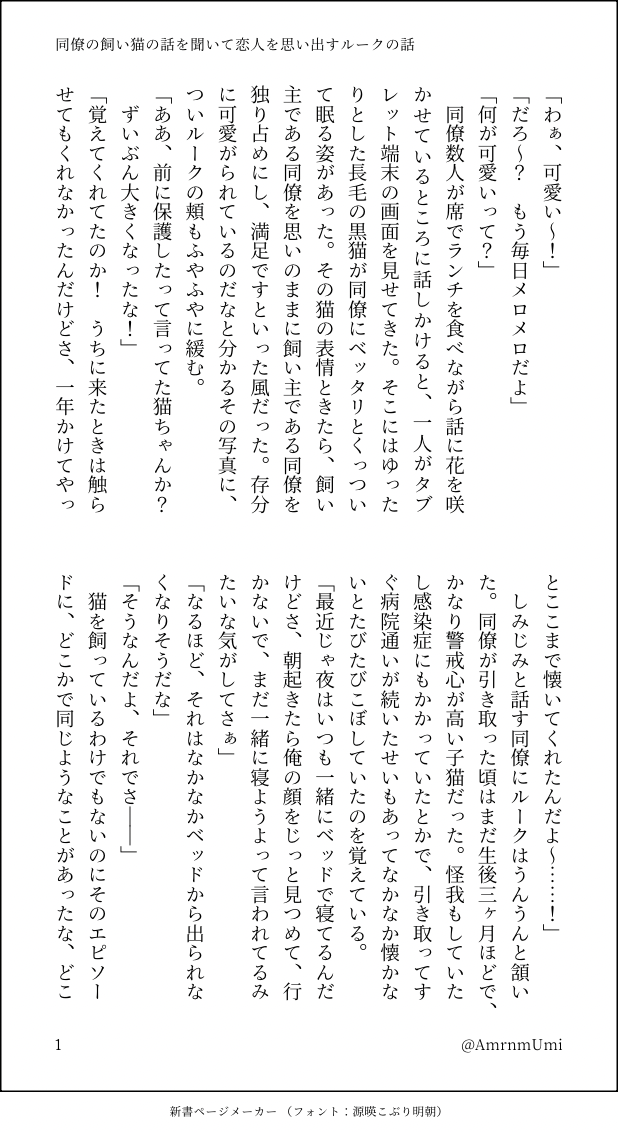 同僚の飼い猫の話を聞いて恋人を思い出すルークの話
「わぁ、可愛い〜！」
「だろ〜？　もう毎日メロメロだよ」
「何が可愛いって？」
　同僚数人が席でランチを食べながら話に花を咲
かせているところに話しかけると、一人がタブ
レット端末の画面を見せてきた。そこにはゆった
りとした長毛の黒猫が同僚にベッタリとくっつい
て眠る姿があった。その猫の表情ときたら、飼い
主である同僚を思いのままに飼い主である同僚を
独り占めにし、満足ですといった風だった。存分
に可愛がられているのだなと分かるその写真に、
ついルークの頬もふやふやに緩む。
「ああ、前に保護したって言ってた猫ちゃんか？
　ずいぶん大きくなったな！」
「覚えてくれてたのか！　うちに来たときは触ら
せてもくれなかったんだけどさ、一年かけてやっ
とここまで懐いてくれたんだよ〜……！」
　しみじみと話す同僚にルークはうんうんと頷い
た。同僚が引き取った頃はまだ生後三ヶ月ほどで、
かなり警戒心が高い子猫だった。怪我もしていた
し感染症にもかかっていたとかで、引き取ってす
ぐ病院通いが続いたせいもあってなかなか懐かな
いとたびたびこぼしていたのを覚えている。
「最近じゃ夜はいつも一緒にベッドで寝てるんだ
けどさ、朝起きたら俺の顔をじっと見つめて、行
かないで、まだ一緒に寝ようよって言われてるみ
たいな気がしてさぁ」
「なるほど、それはなかなかベッドから出られな
くなりそうだな」
「そうなんだよ、それでさ――」
　猫を飼っているわけでもないのにそのエピソー
ドに、どこかで同じようなことがあったな、どこ
1
@AmrnmUmi
新書ページメーカー（フォント：源暎こぶり明朝）